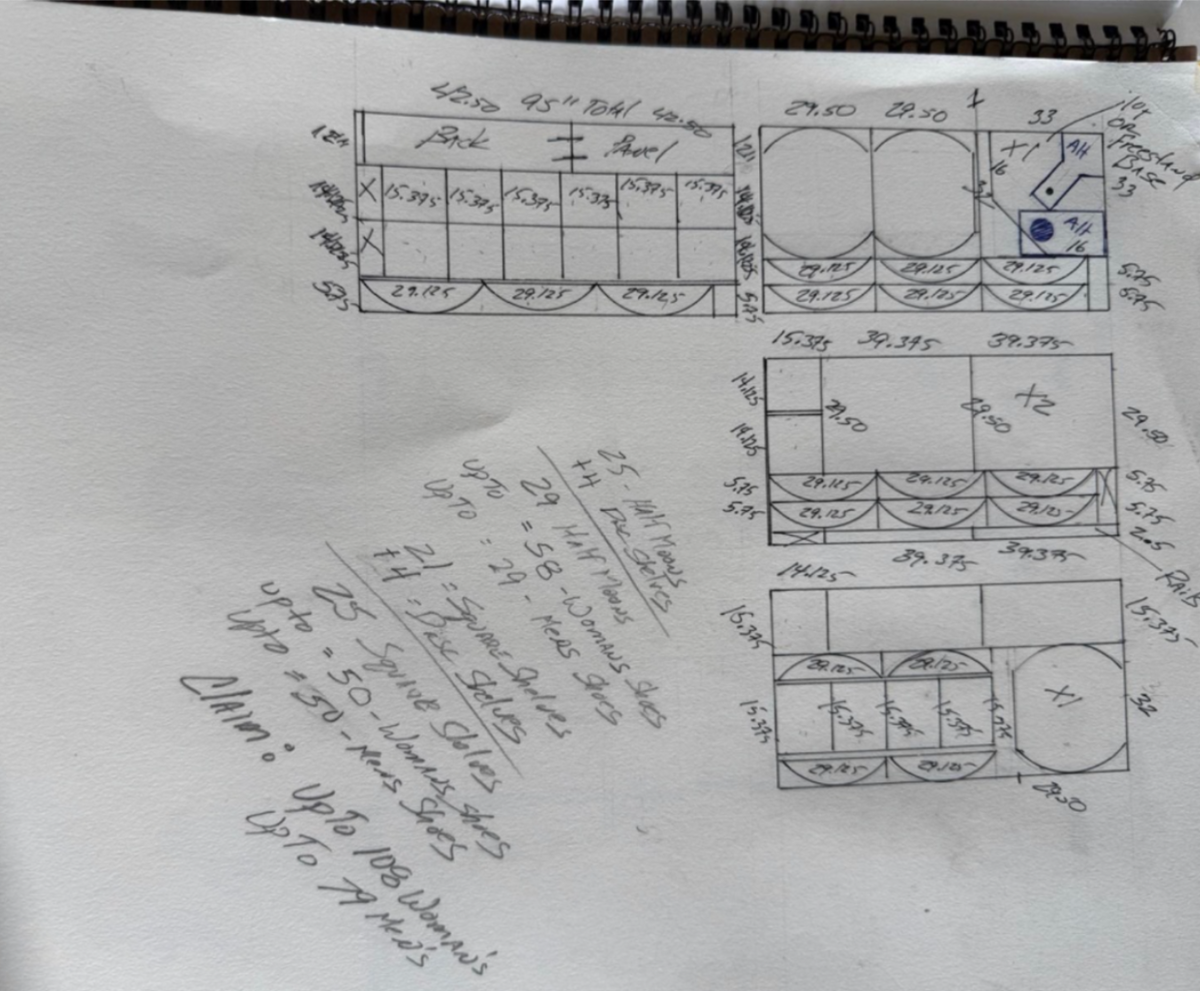 42.50 95" Total 42.50
Back Panel
X 15.375 15.375 15.375 15.375 15.375 15.375
X
5.75 29.125 29.125 29.125 5.75
29.50 29.50 1 33
Base
X1 A1t
16 33
A1t
16
29.125 29.125 29.125 5.75
29.125 29.125 29.125 5.75
15.375 39.375 39.375
14.125 29.50 29.50 X2 29.50
14.125
5.75 29.125 29.125 29.125 5.75
5.75 29.125 29.125 29.125 5.75
2.5
39.375 39.375
Rails
14.125
15.375 15.375
29.125 29.125
15.375 15.375 15.375 15.375 15.375 X1 32
29.125 29.125
29.50
25 - Half Moons
+4 Disc Shelves
29 Half Moons
upto = 58 - Womans Shoes
upto = 29 - Mens Shoes
21 = Square Shelves
+4 = Disc Shelves
25 Square Shelves
upto = 50 - Womans Shoes
upto = 50 - Mens Shoes
Claim:
UpTo 108 Woman's
UpTo 79 Men's